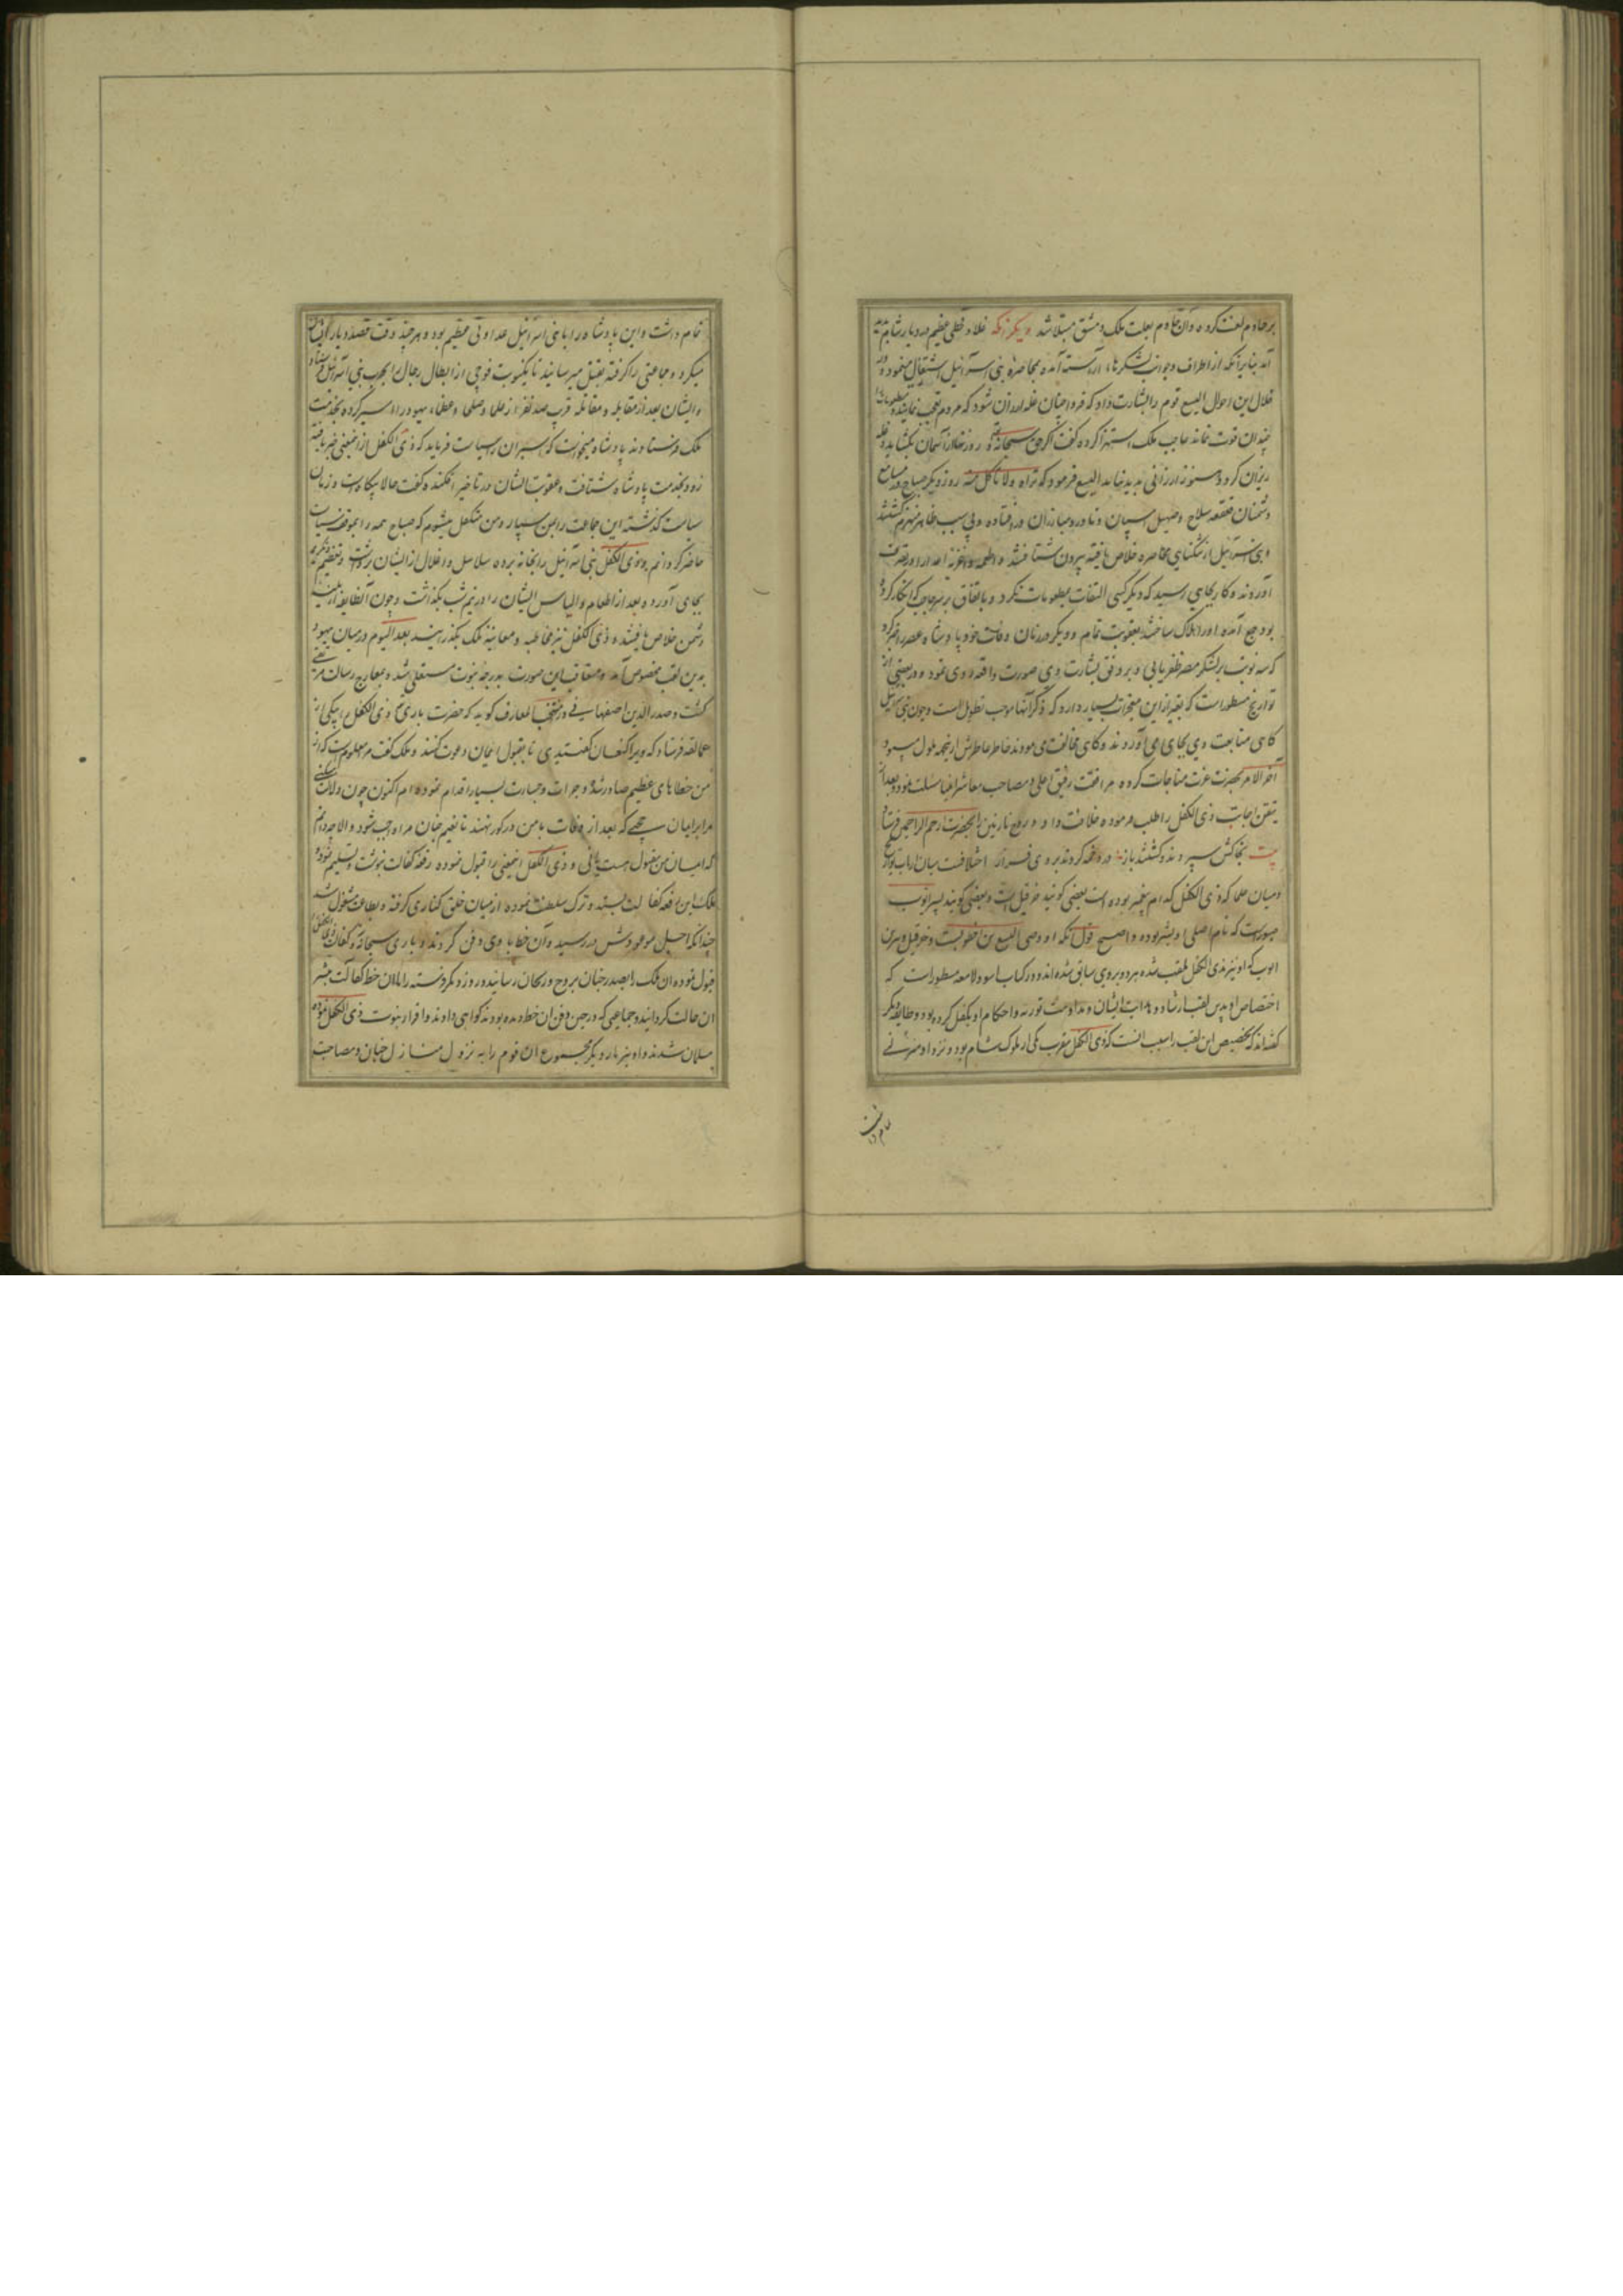 بر خادم لعنت کرده و آن خادم بعلت ملک دمشق مبتلا شد دیگر آنکه غلا و قحطی عظیم در دیار شام پدید
آمد بنابر آنکه از اطراف و جوانب لشکرها آراسته آمده بمحاصره بنی اسرائیل اشتغال مینمودند و در
خلال این احوال الیسع قوم را بشارت داد که فردا چنان غله ارزان شود که مردم تعجب نمایند
چندان قوت نماند حاجب ملک استهزا کرده گفت اگر حق سبحانه و روزنها از آسمان بگشاید و غله
ریزان کرد هنوز ارزانی پدید نیاید الیسع فرمود که تراه ولا تاکل منه روز دیگر صباح در مسامع
دشمنان قعقعه سلاح و صهیل اسپان و در مبارزان در افتاده و بی سبب ظاهر منهزم گشتند
و بنی اسرائیل از تنگنای محاصره خلاص یافته بیرون شتافتند و اطعمه و اغذیه اعدا در تصرف
آوردند و کار بجایی رسید که دیگر کسی التفات بمطعومات نکرد و باتفاق بر سر حاجب که انکار کرده
بود جمع آمده او را هلاک ساختند بعقوبت تمام و دیگر در زمان وفات خود پادشاه عصر را خبر کرد
که سه نوبت بر لشکر مصر ظفر یابی و بر وفق بشارت وی صورت واقعه روی نمود و در بعضی از
تواریخ مسطور است که بغیر از این معجزات بسیار دارد که ذکر آنها موجب تطویل است و چون بنی اسرائیل
گاهی متابعت وی بجای می آوردند و گاهی مخالفت می نمودند خاطر عاطرش از ینجهه ملول میبود
آخر الامر بحضرت عزت مناجات کرده مرافقت رفیق اعلی و مصاحب معاشر انبیا مسئلت نمود و بعد از
تیقن اجابت ذی الکفل را طلب فرموده خلافت داد و روح نازنین را بحضرت ارحم الراحمین فرستاد
بیت بخاکش سپردند و گشتند باز در دخمه کردند بروی فراز اختلافست میان ارباب تواریخ
و میان علما که ذی الکفل کدام پیغمبر بوده است بعضی گویند حزقیل است و بعضی گویند پسر ایوب
صبور است که نام اصلی او بشر بوده و اصح قول آنکه او وصی الیسع بن خطوبست و حزقیل و بشر بن
ایوب که او نیز بذی الکفل ملقب شده هر دو بر وی سابق شده اند و در کتاب اسود لامعه مسطور است که
اختصاص او بدین لقب ارشاد و هدایت ایشان و مداومت توریه و احکام او تکفل کرده بود و طایفه دیگر
گفته اند که تخصیص این لقب را سبب آنست که ذی الکفل مقرب یکی از ملوک شام بود و نزد او منزلتی
تمام داشت
تمام داشت و این پادشاه را با بنی اسرائیل عداوتی عظیم بود و هر چند وقت قصد دیار ایشان
میکرد و جماعتی را گرفته بقتل میرسانید تا یکنوبت فوجی از ابطال رجال را بحرب بنی اسرائیل فرستاد
و ایشان بعد از مقابله و مقاتله قریب صد نفر از علما و صلحا و عظماء یهود را اسیر کرده بخدمت
ملک فرستادند پادشاه میخواست که اسیران را سیاست فرماید که ذی الکفل از اینمعنی خبر یافته
زود بخدمت پادشاه شتافت و عقوبت ایشان در تاخیر افکنده گفت حالا بیگاه است و زمان
سیاست گذشته این جماعت را بمن سپار و من متکفل میشوم که صباح همه را بموقف سیاست
حاضر گردانم و ذی الکفل بنی اسرائیل را بخانه برده سلاسل و اغلال از ایشان برداشت و تعظیم و تکریم
بجای آورده بعد از اطعام و الباس ایشان را در نیم شب بگذاشت و چون آنطایفه از بلیه
دشمن خلاص یافتند ذی الکفل نیز مخاطبه و معاتبه ملک بگذرانید بعد الیوم در میان یهود
بدین لقب مخصوص آمد و متعاقب این صورت بدرجه نبوت مستعلی شد و بمعارج رسالت مرتقی
گشت و صدر الدین اصفهانی در منتخب المعارف گوید که حضرت باری تع ذی الکفل را بیکی از
عمالقه فرستاد که ویرا کنعان گفتندی تا بقبول ایمان دعوت کند و ملک گفت مر معلومست که از
من خطاهای عظیم صادر شد و جرات و جسارت بسیار اقدام نموده ام اکنون چون دلالت
مرا بر ایمان حجتی که بعد از وفات با من در گور نهند تا نعیم جنان مرا واجب شود و الا چه دانم
که ایمان من مقبول هست یا نی و ذی الکفل اینمعنی را قبول نموده رقعه کفالت نوشت و تسلیم نمود
ملک این رقعه کفالت بستد و ترک سلطنت نموده از میان خلق کناری گرفته و بطاعت مشغول شد
چندانکه اجل موعودش در رسید و آن خط با وی دفن کردند و باری سبحانه کفالت ذی الکفل را
قبول نموده ان ملک را بصدر جنان بروح و ریحان رسانید و روز دیگر فرشته را با ان خط کفالت مبشر
ان حالت گردانید و جماعتی که در حین دفن ان خط دیده بودند گواهی دادند و اقرار بنبوت ذی الکفل نموده
مسلمان شدند و او نیز بار دیگر مجموع ان قوم را به نزول منازل جنان و مصاحبت